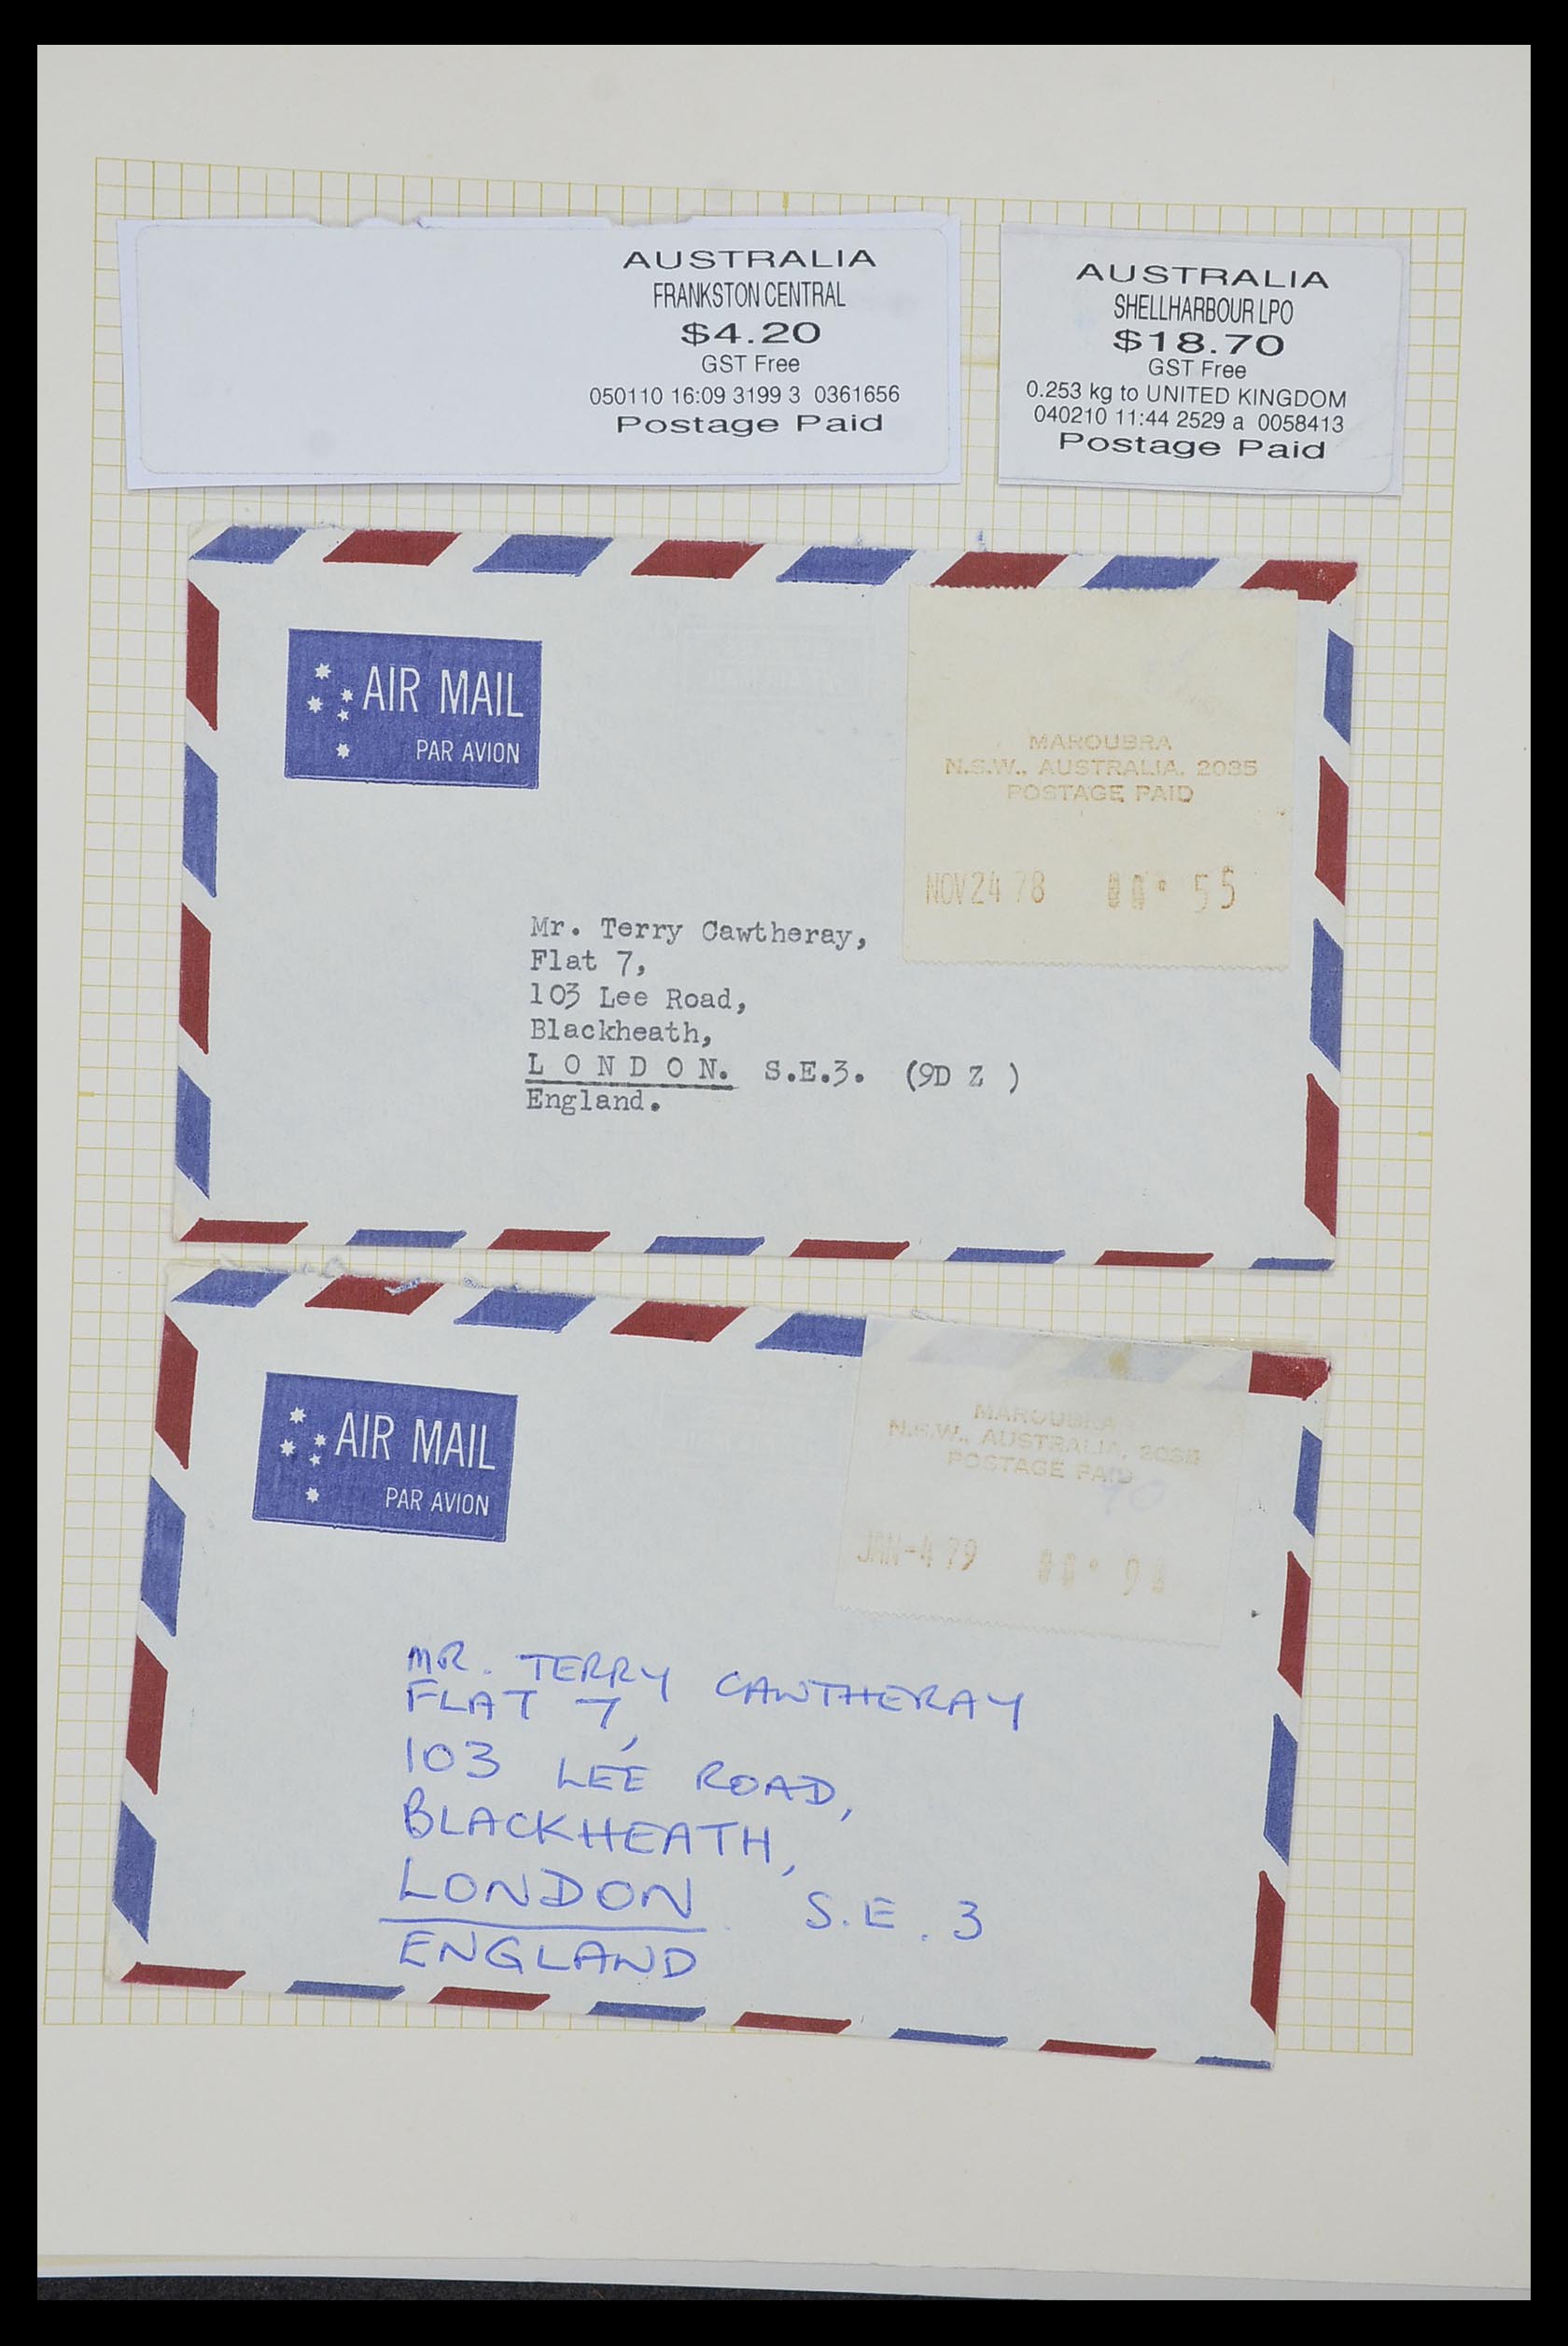 AUSTRALIA
FRANKSTON CENTRAL
$4.20
GST Free
050110 16:09 3199 3 0361656
Postage Paid
AUSTRALIA
SHELLHARBOUR LPO
$18.70
GST Free
0.253 kg to UNITED KINGDOM
040210 11:44 2529 a 0058413
Postage Paid
AIR MAIL
PAR AVION
MAROUBRA
N.S.W., AUSTRALIA. 2035
POSTAGE PAID
NOV 24 78 00 55
Mr. Terry Cawtheray,
Flat 7,
103 Lee Road,
Blackheath,
L O N D O N. S.E.3. (9D Z )
England.
AIR MAIL
PAR AVION
MAROUBRA
N.S.W., AUSTRALIA, 2035
POSTAGE PAID
JAN-4 79 00 90
MR. TERRY CAWTHERAY
FLAT 7,
103 LEE ROAD,
BLACKHEATH,
LONDON S.E.3
ENGLAND